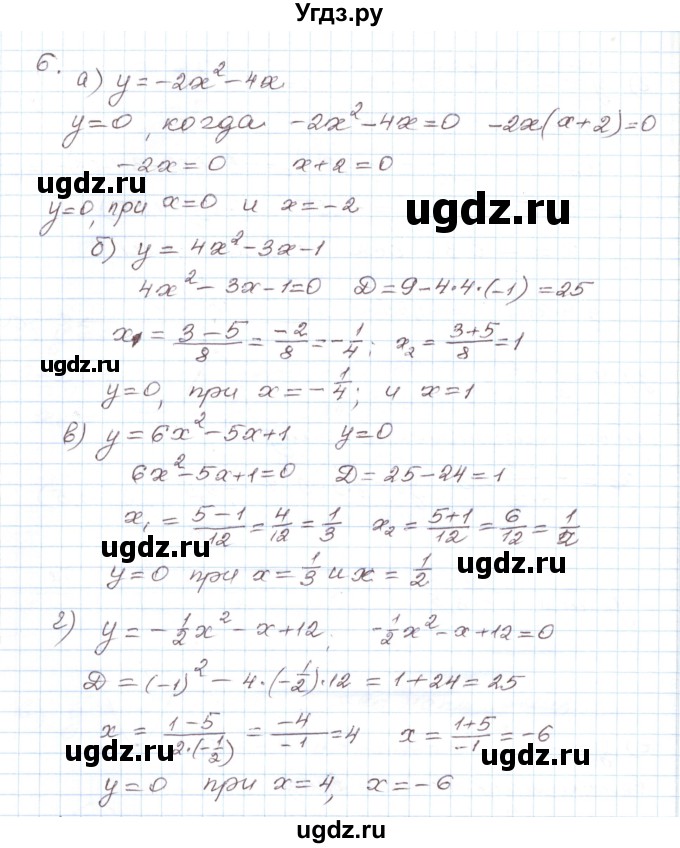 Угдз.ру
6.
а) y = -2x² - 4x
y=0, когда -2x² - 4x = 0 -2x(x+2)=0
-2x = 0 x+2 = 0
ugdz.ru
y=0, при x=0 и x=-2
ugdz.ru
б) y = 4x² - 3x - 1
4x² - 3x - 1 = 0 D = 9 - 4·4·(-1) = 25
x₁ = (3-5)/8 = -2/8 = -1/4; x₂ = (3+5)/8 = 1
ugdz.ru
y=0, при x = -1/4; и x=1
в) y = 6x² - 5x + 1 y=0
6x² - 5x + 1 = 0 D = 25 - 24 = 1
x₁ = (5-1)/12 = 4/12 = 1/3 x₂ = (5+1)/12 = 6/12 = 1/2
ugdz.ru
ugdz.ru
y=0 при x = 1/3 и x = 1/2
г) y = -1/2x² - x + 12, -1/2x² - x + 12 = 0
D = (-1)² - 4·(-1/2)·12 = 1 + 24 = 25
x = (1-5)/(2·(-1/2)) = -4/-1 = 4 x = (1+5)/-1 = -6
ugdz.ru
ugdz.ru
y=0 при x=4, x=-6
ugdz.ru